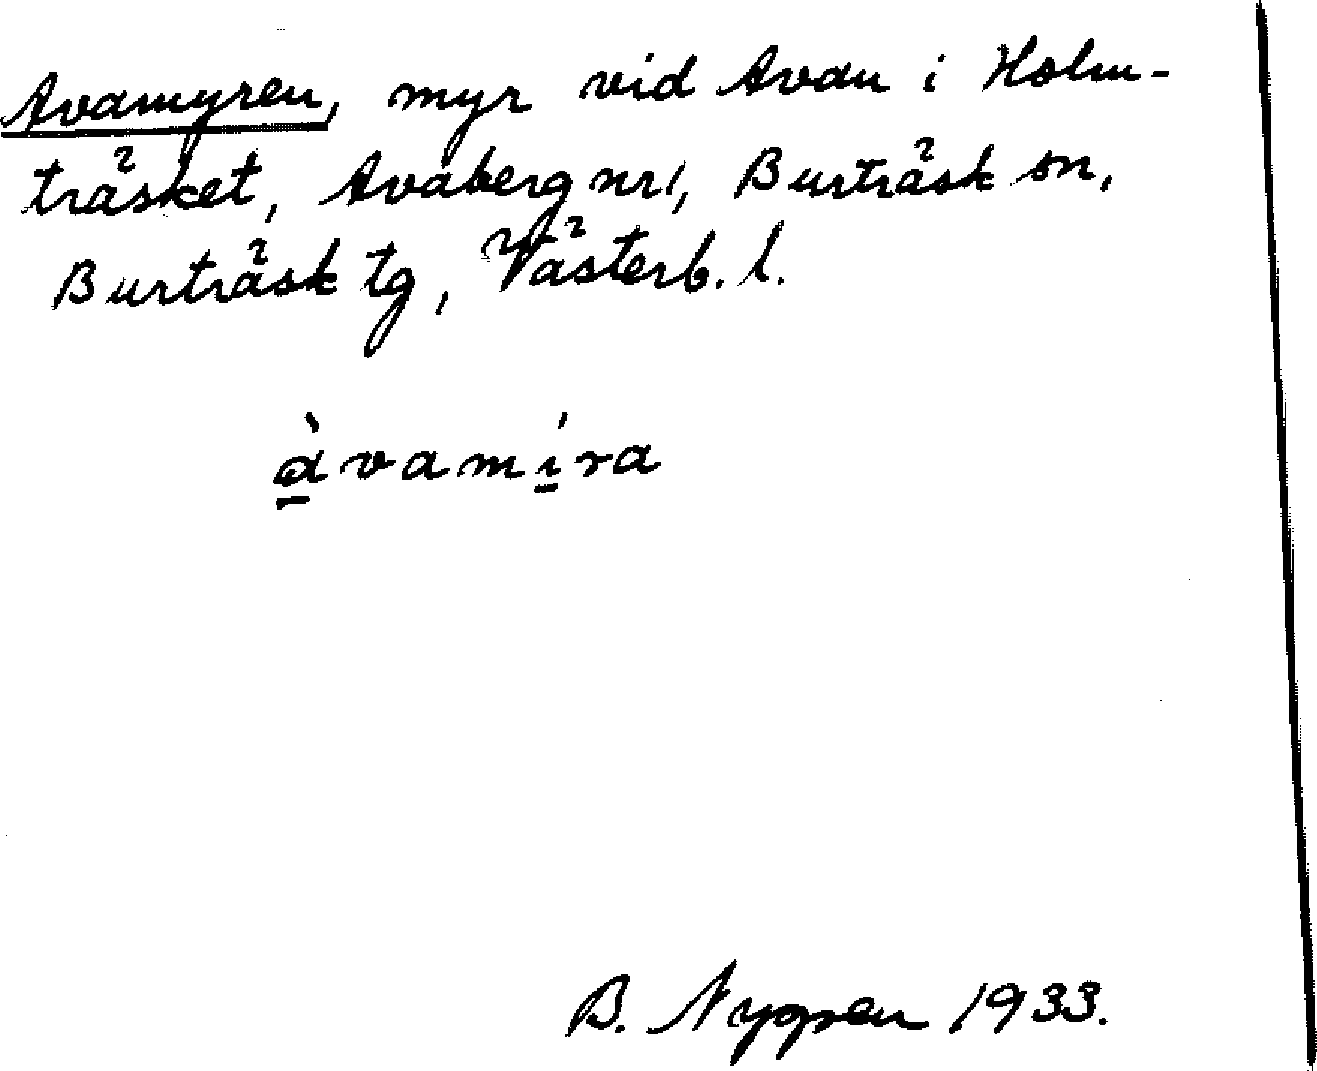 Avamyren, myr vid Avan i Holm-
träsket, Avaberg nr 1, Burträsk sn,
Burträsk tg, Västerb. l.
àvamíra
B. Nygren 1933.